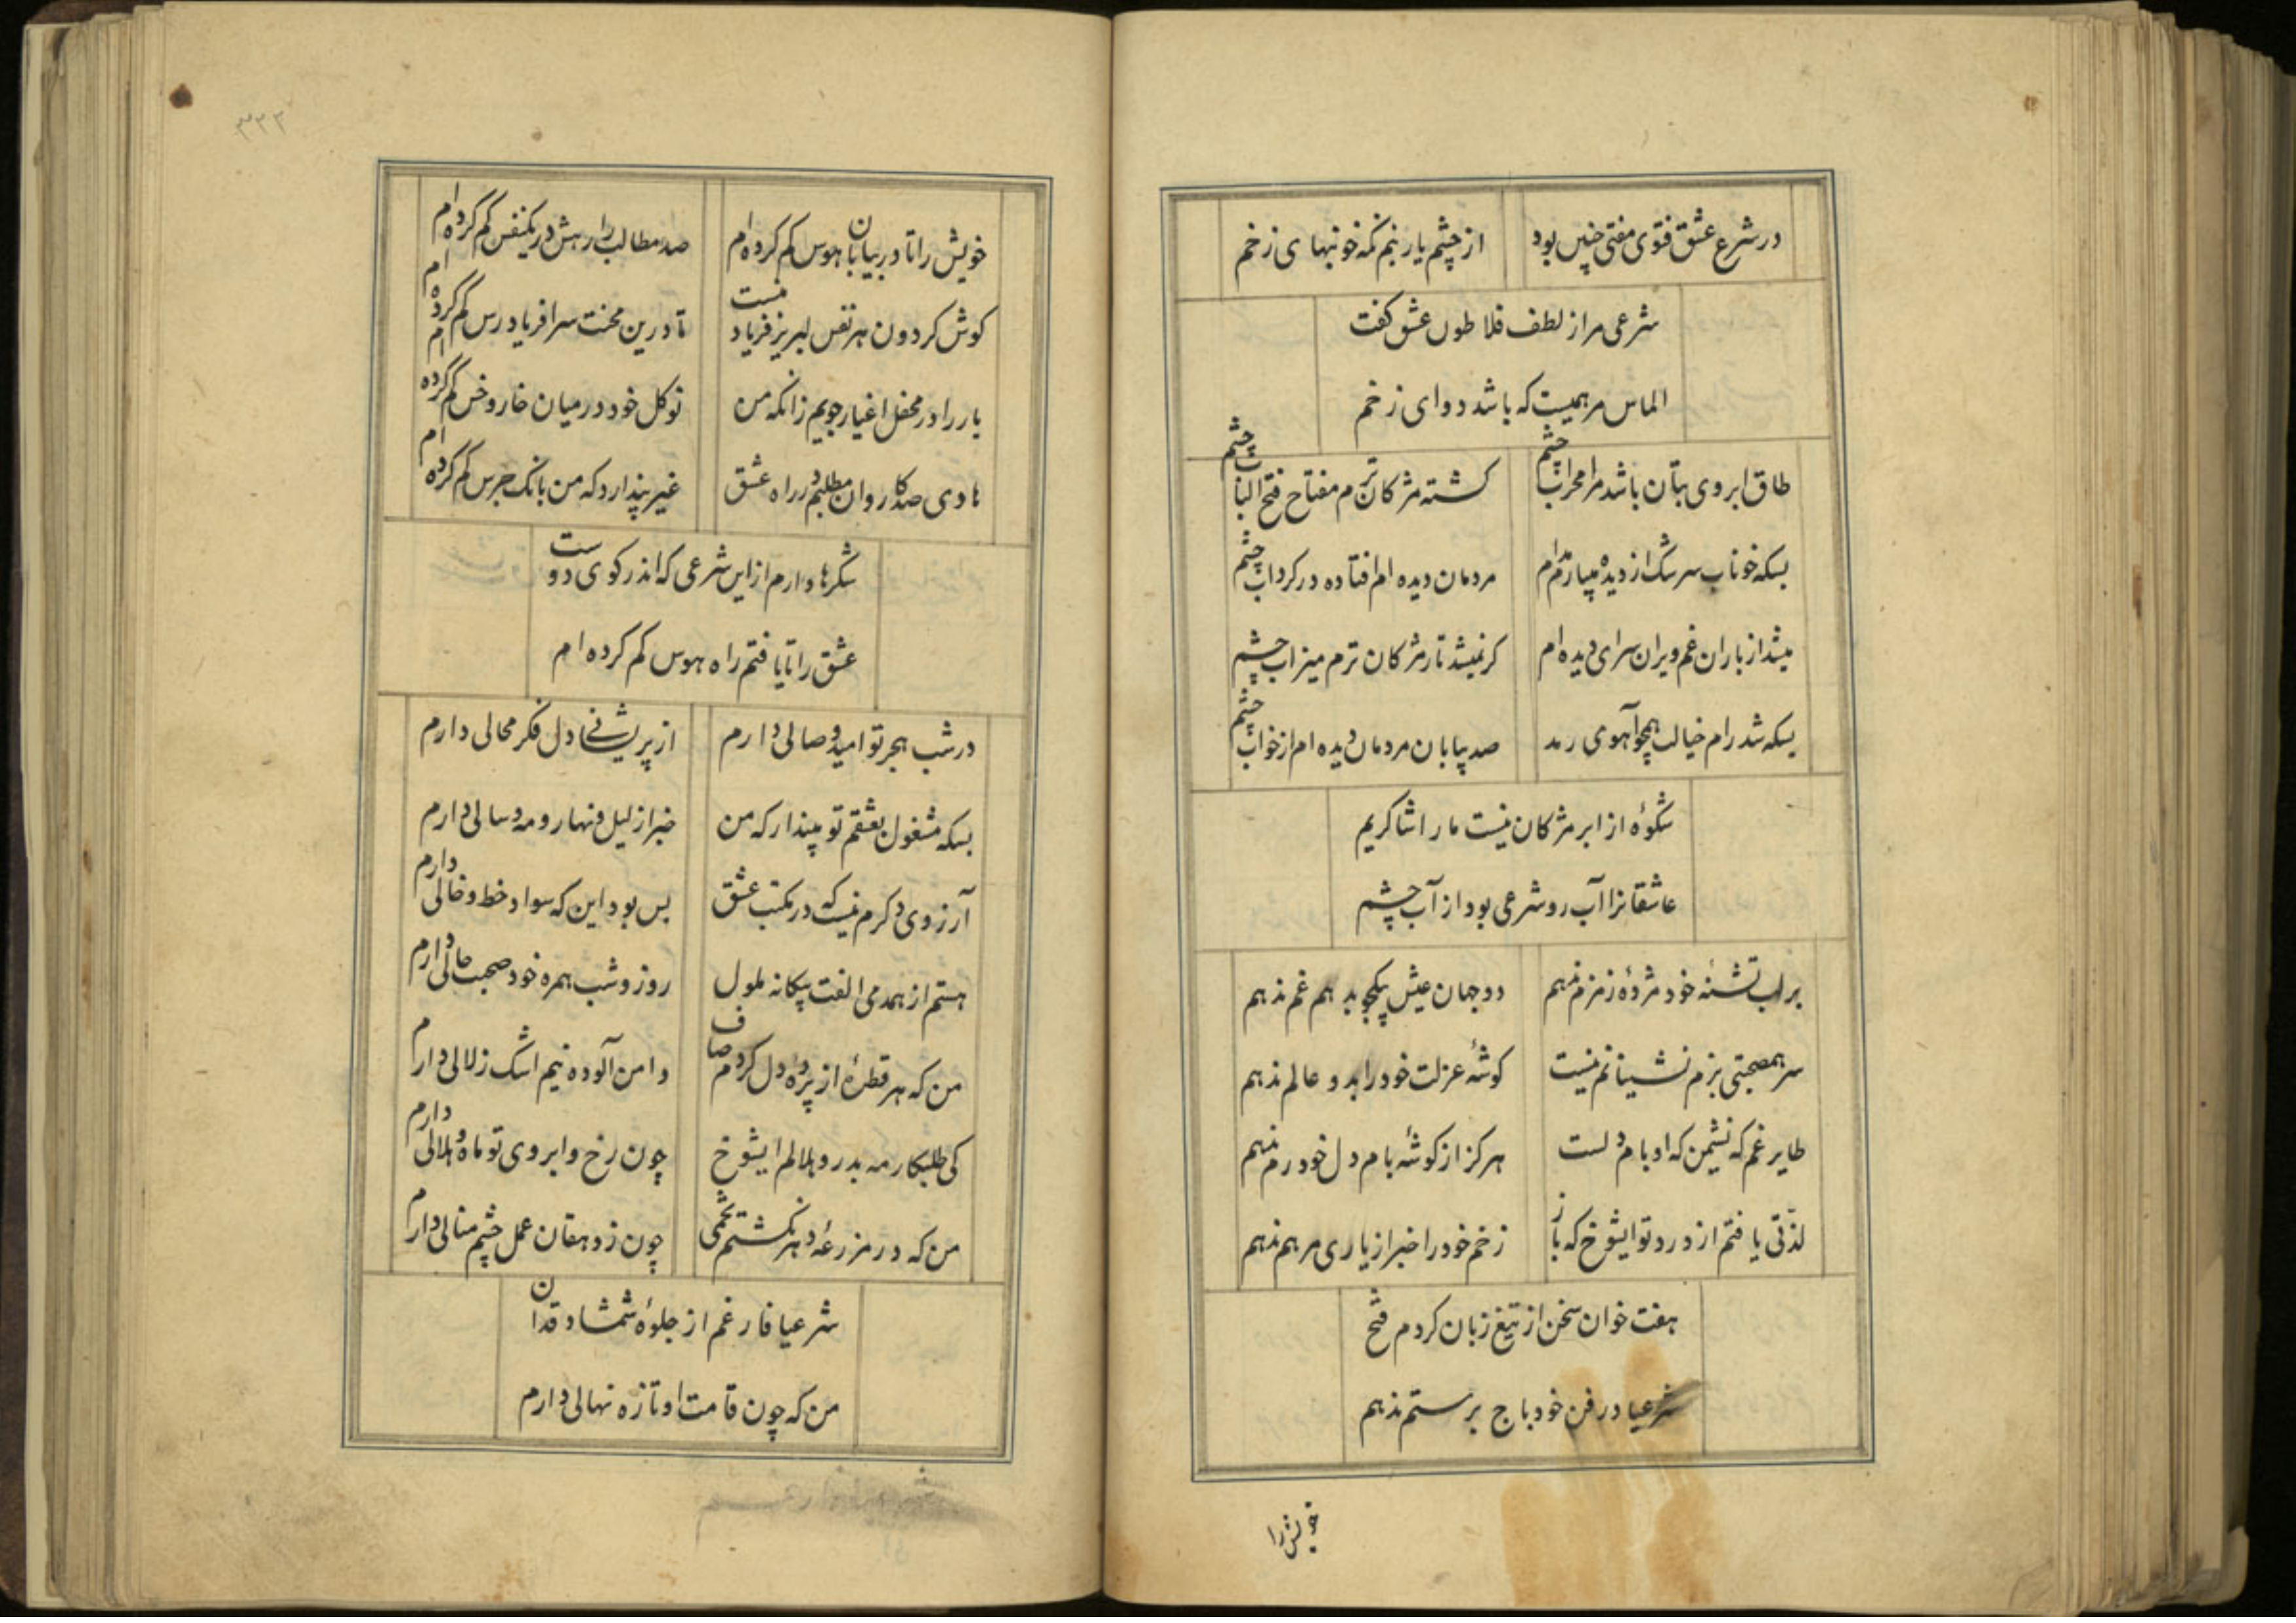 در شرع عشق فتوی مفتی چنین بود
از چشم یار نیم نگه خونبهای زخم
شرعی مرا ز لطف فلاطون عشق گفت
الماس مرهمیست که باشد دوای زخم
طاق ابروی بتان باشد مرا محراب چشم
کشته مژکان ترم مفتاح فتح الباب چشم
بسکه خوناب سرشک از دیده میبارم مدام
مردمان دیده ام افتاده در کرداب چشم
میشد از باران غم ویران سرای دیده ام
کر نمیشد تار مژکان ترم میزاب چشم
بسکه شد رام خیالت همچو آهوی رمد
صد بیابان مردمان دیده ام از خواب چشم
شکوهٔ از ابر مژکان نیست ما را شاکریم
عاشقانرا آب رو شرعی بود از آب چشم
بر لب تشنهٔ خود مژدهٔ زمزم ندهم
دو جهان عیش بیکجو بدهم غم ندهم
سر همصحبتی بزم نشینانم نیست
کوشهٔ عزلت خود را بدو عالم ندهم
طایر غم که نشیمن که او بام دلست
هرکز از کوشهٔ بام دل خود رم ندهم
لذّتی یافتم از درد تو ایشوخ که باز
زخم خود را خبر از یاری مرهم ندهم
هفت خوان سخن از تیغ زبان کردم فتح
شرعیا در فن خود باج برستم ندهم
خویش را
٣٣٣
خویش را تا در بیابان هوس کم کرده ام
صد مطالب را رهش در یکنفس کم کرده ام
کوش کردون هر نفس لبریز فریاد منست
تا درین محنت سرا فریادرس کم کرده ام
یار را در محفل اغیار جویم زانکه من
نوکل خود در میان خار و خس کم کرده ام
هادی صد کاروان مطلبم در راه عشق
غیر پندارد که من بانک جرس کم کرده ام
شکرها دارم از این شرعی که اندر کوی دوست
عشق را تا یافتم راه هوس کم کرده ام
در شب هجر تو امید وصالی دارم
از پریشانی دل فکر محالی دارم
بسکه مشغول بعشقم تو مپندار که من
خبر از لیل و نهار و مه و سالی دارم
آرزوی دکرم نیست که در مکتب عشق
بس بود این که سواد خط و خالی دارم
هستم از همدمی الفت بیکانه ملول
روز و شب همره خود صحبت حالی دارم
من که هر قطرهٔ از پردهٔ دل کردم صاف
دامن آلوده نیم اشک زلالی دارم
کی طلبکار مه بدر و هلالم ایشوخ
چون رخ و ابروی تو ماه و هلالی دارم
من که در مزرعهٔ دهر نکشتم تخمی
چون ز دهقان عمل چشم منالی دارم
شرعیا فارغم از جلوهٔ شمشاد قدان
من که چون قامت او تازه نهالی دارم